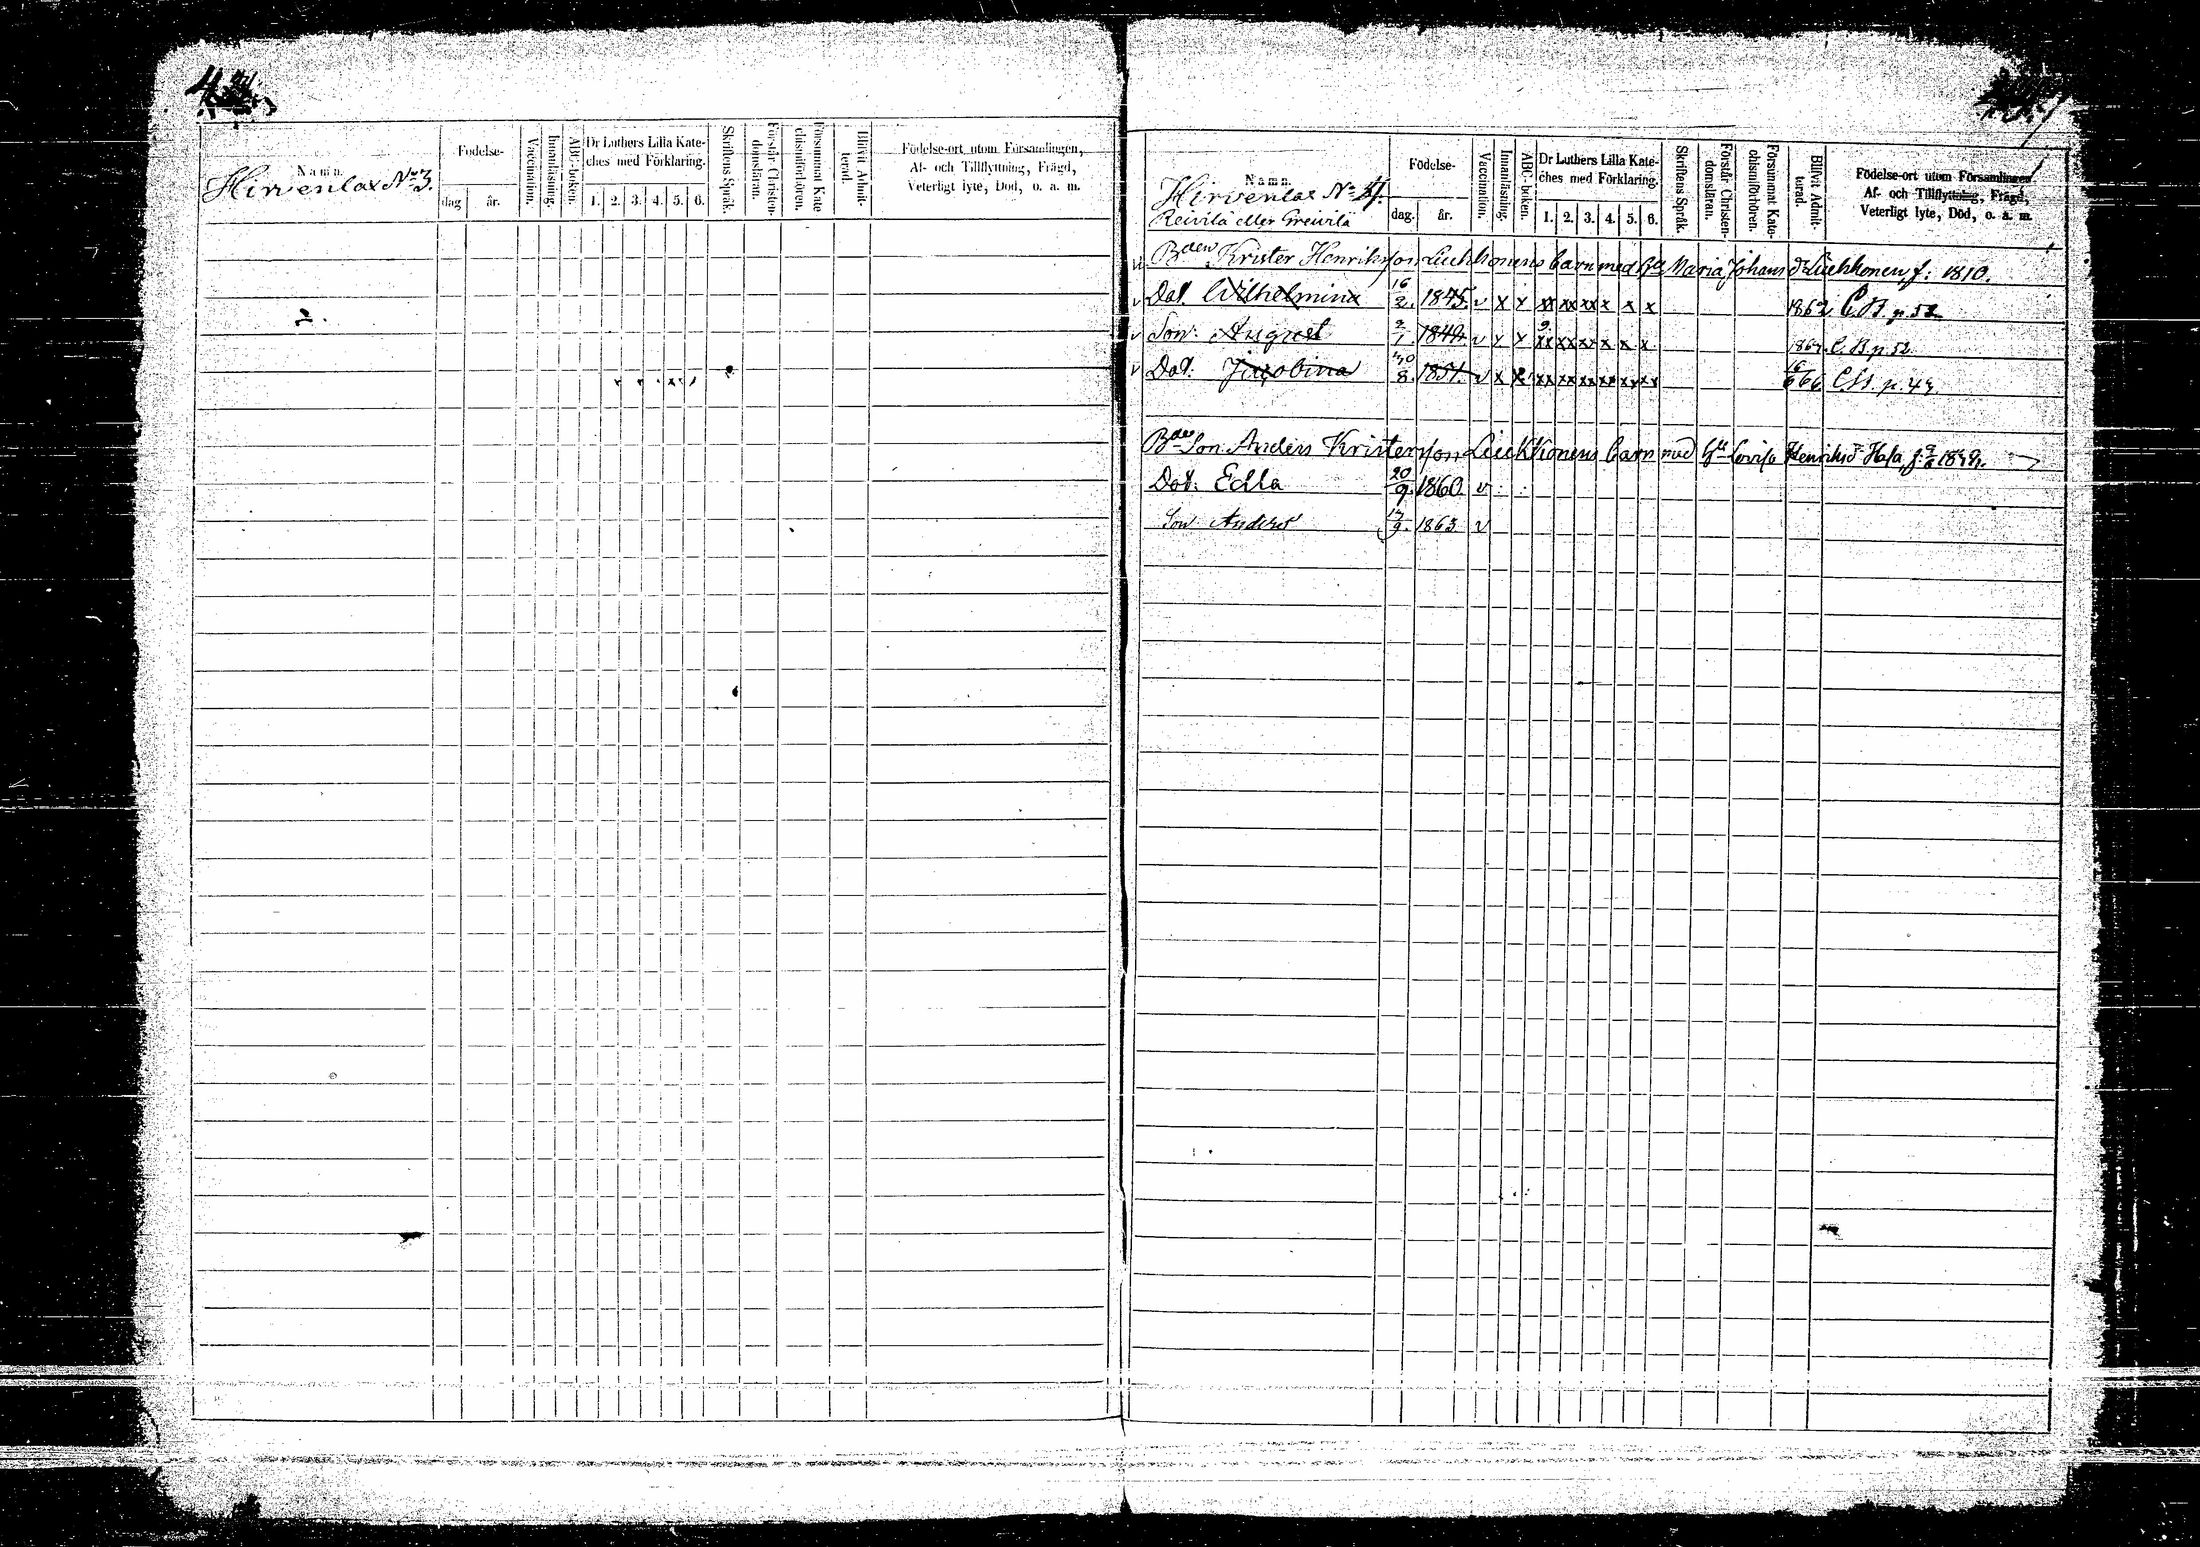 Namn.
Hirvenlax No 3.
Födelse-
dag
år.
Vaccination.
Innanläsning.
ABC-boken.
Dr Luthers Lilla Kate-
ches med Förklaring.
1. 2. 3. 4. 5. 6.
Skriftens Språk.
Förstår Christen-
domsläran.
Försummat Kate
chismiförhören.
Blifvit Admit-
terad.
Födelse-ort utom Församlingen,
Af- och Tillflyttning, Frägd,
Veterligt lyte, Död, o. a. m.
Namn.
Hirvenlax No 4.
Reivilä eller Greivilä
Födelse-
dag. år.
Vaccination.
Innanläsning.
ABC-boken.
Dr Luthers Lilla Kate-
ches med Förklaring.
1. 2. 3. 4. 5. 6.
Skriftens Språk.
Förstår Christen-
domsläran.
Försummat Kate-
chismiförhören.
Blifvit Admit-
terad.
Födelse-ort utom Församlingen
Af- och Tillflyttning, Frägd,
Veterligt lyte, Död, o. a. m.
Bden Krister Henriksson Liickkonens barn med Maria Johans dr Liickkonen f: 1810.
v Dot. Wilhelmina 16/2. 1845. v x x xx xx xx x x x 1862 C.B. p. 52
v Son: August 1849. v x x xx xx xx x x x C.B. p. 52
v Dot. Jacobina 8. 1851. v x x xx xx xx xx xx xx 16/6 66 C.B. p. 49.
Bde Son Anders Kristersson Liickkonens barn med Lovisa Henriks dr
Dot: Edla 20/9. 1860 v
Son Anders 9. 1863 v